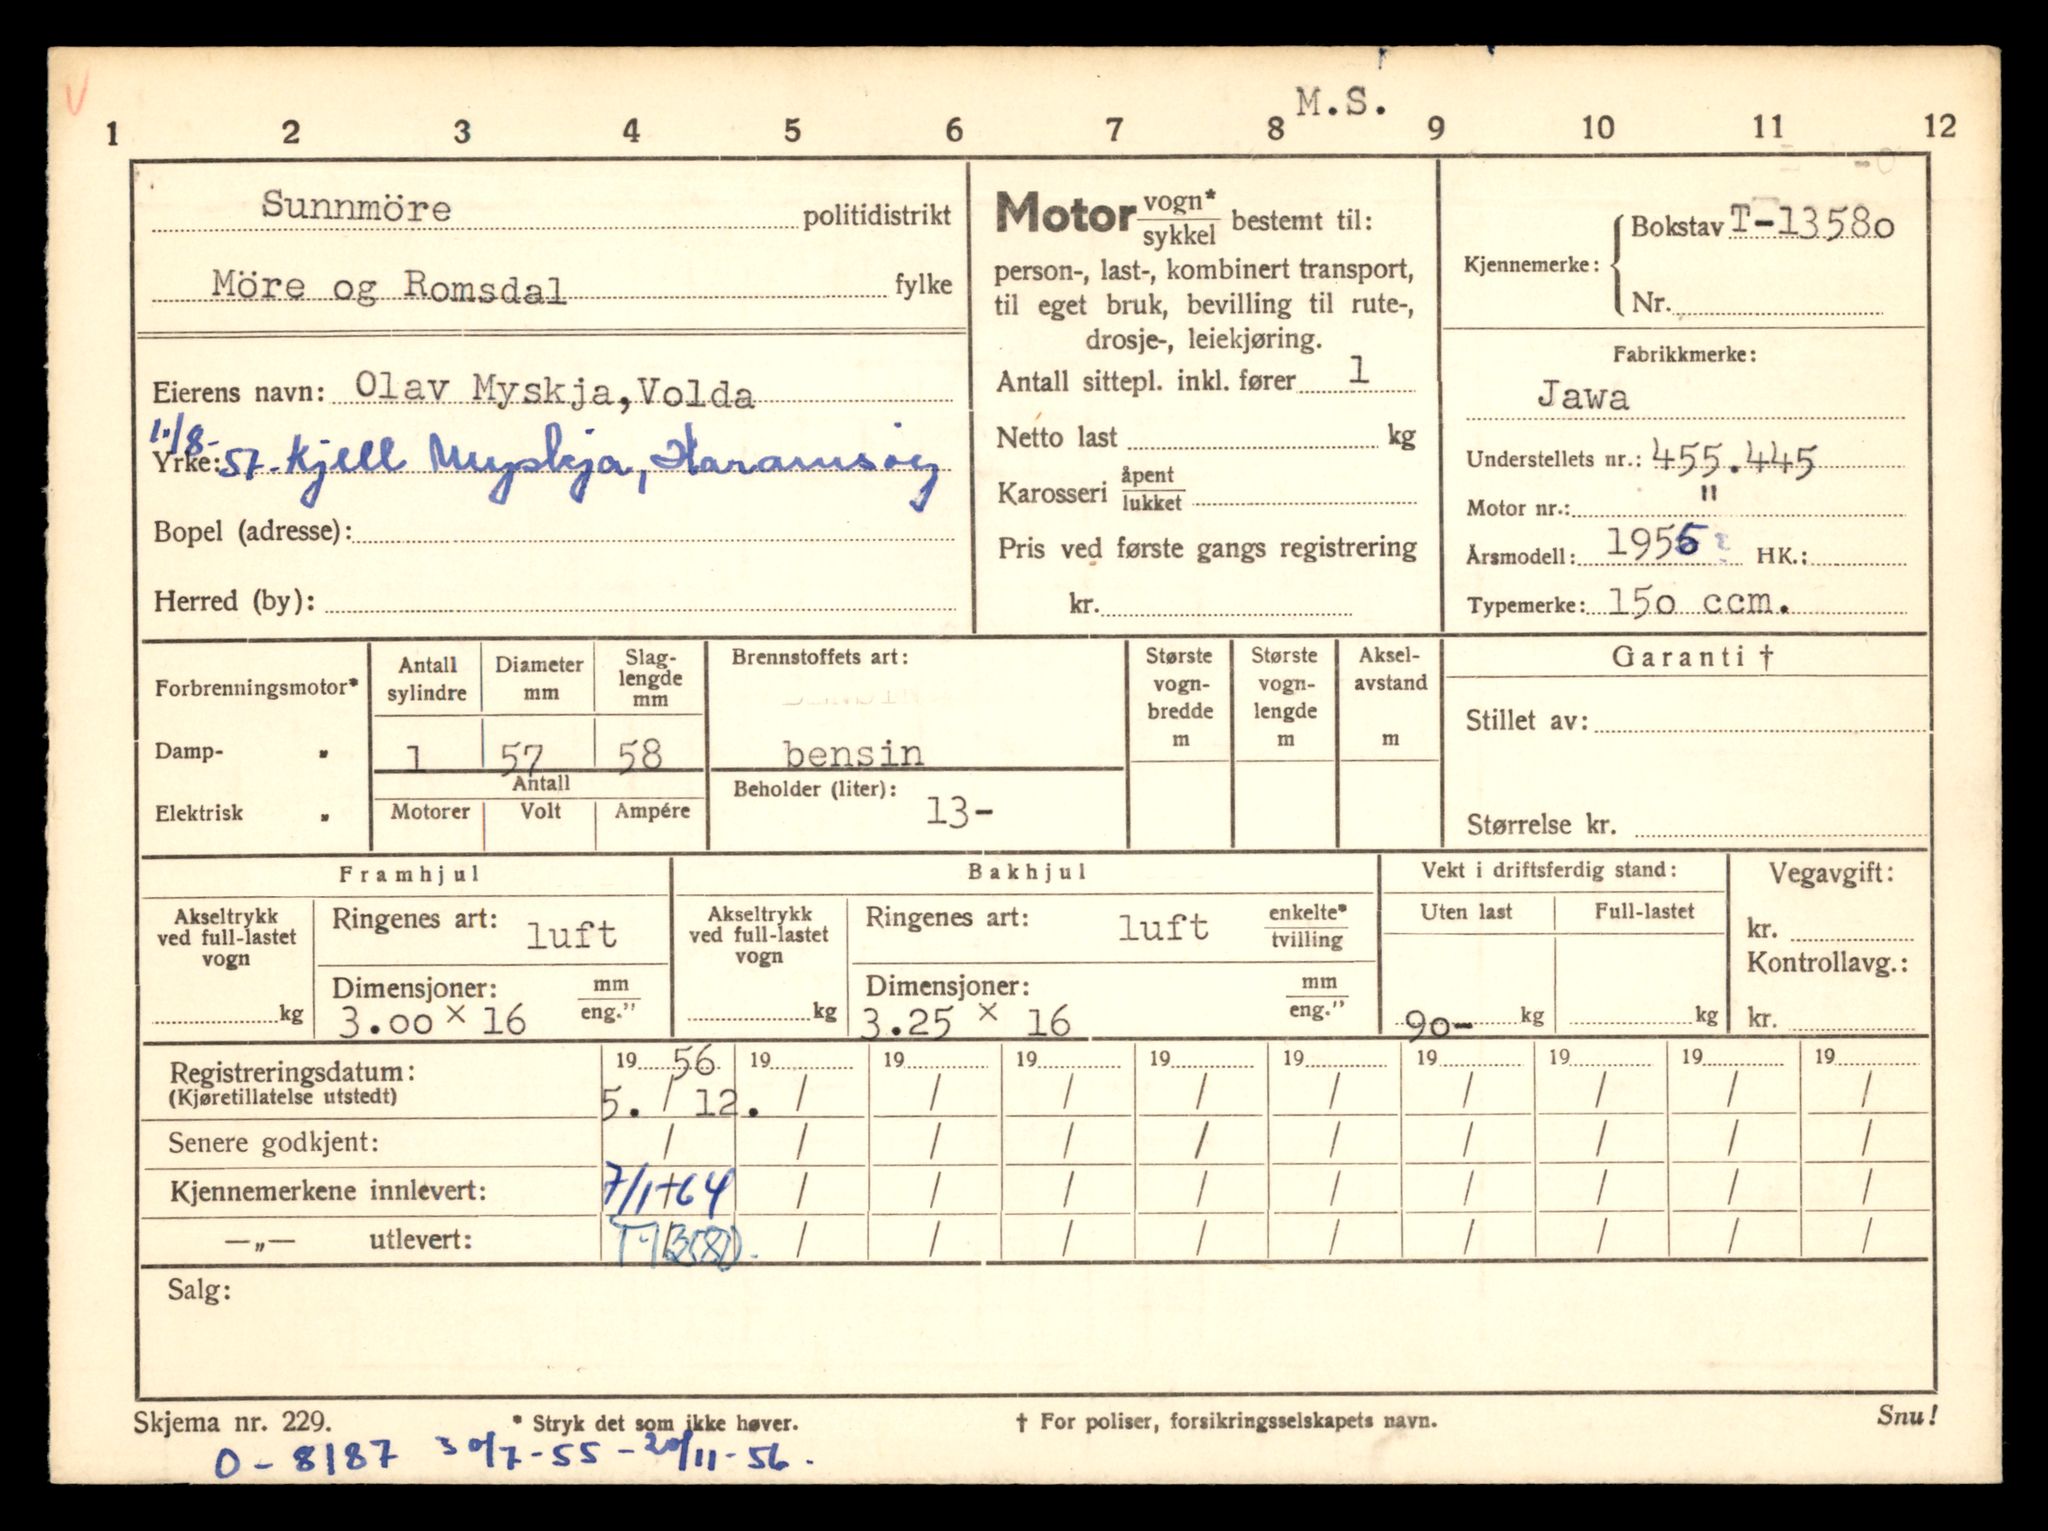 V
M.S.
1 2 3 4 5 6 7 8 9 10 11 12
Sunnmöre politidistrikt
Möre og Romsdal fylke
Eierens navn: Olav Myskja, Volda
Yrke: 11/8-57. Kjell Myskja, Haramsøy
Bopel (adresse):
Herred (by):
Motor vogn*/sykkel bestemt til:
person-, last-, kombinert transport,
til eget bruk, bevilling til rute-,
drosje-, leiekjøring.
Antall sittepl. inkl. fører 1
Netto last kg
Karosseri åpent/lukket
Pris ved første gangs registrering
kr.
Kjennemerke: Bokstav T-13580
Nr.
Fabrikkmerke:
Jawa
Understellets nr.: 455.445
Motor nr.: "
Årsmodell: 1955 HK.:
Typemerke: 150 ccm.
Forbrenningsmotor*
Damp- "
Elektrisk "
Antall sylindre Diameter mm Slag-lengde mm
1 57 58
Antall
Motorer Volt Ampére
Brennstoffets art:
bensin
Beholder (liter): 13-
Største vogn-bredde m
Største vogn-lengde m
Aksel-avstand m
Garanti †
Stillet av:
Størrelse kr.
Framhjul
Akseltrykk ved full-lastet vogn
kg
Ringenes art: luft
Dimensjoner: mm/eng."
3.00 x 16
Bakhjul
Akseltrykk ved full-lastet vogn
kg
Ringenes art: luft enkelte*/tvilling
Dimensjoner: mm/eng."
3.25 x 16
Vekt i driftsferdig stand:
Uten last Full-lastet
90- kg kg
Vegavgift:
kr.
Kontrollavg.:
kr.
Registreringsdatum: 19 56 19 19 19 19 19 19 19 19 19
(Kjøretillatelse utstedt) 5. / 12. / / / / / / / / /
Senere godkjent: / / / / / / / / / /
Kjennemerkene innlevert: 7/1-64 / / / / / / / / /
—„— utlevert: T-13580. / / / / / / / / /
Salg:
Skjema nr. 229. * Stryk det som ikke høver. † For poliser, forsikringsselskapets navn. Snu!
O-8187 30/7-55-20/11-56.